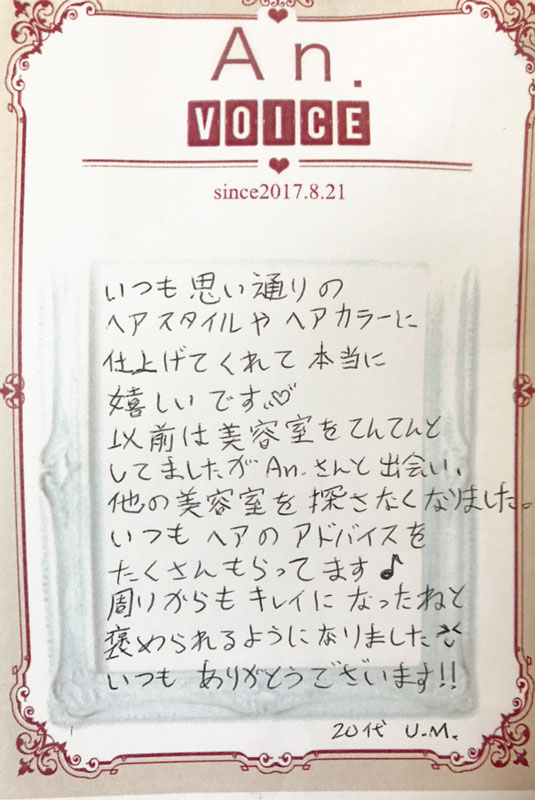 An.
VOICE
since2017.8.21
いつも思い通りの
ヘアスタイルや ヘアカラーに
仕上げてくれて本当に
嬉しいです♡
以前は美容室をてんてんと
してましたが An.さんと出会い、
他の美容室を探さなくなりました。
いつも ヘアの アドバイスを
たくさんもらってます♪
周りからも キレイに なったねと
褒められるようになりました
いつも ありがとうございます!!
20代 U.M.